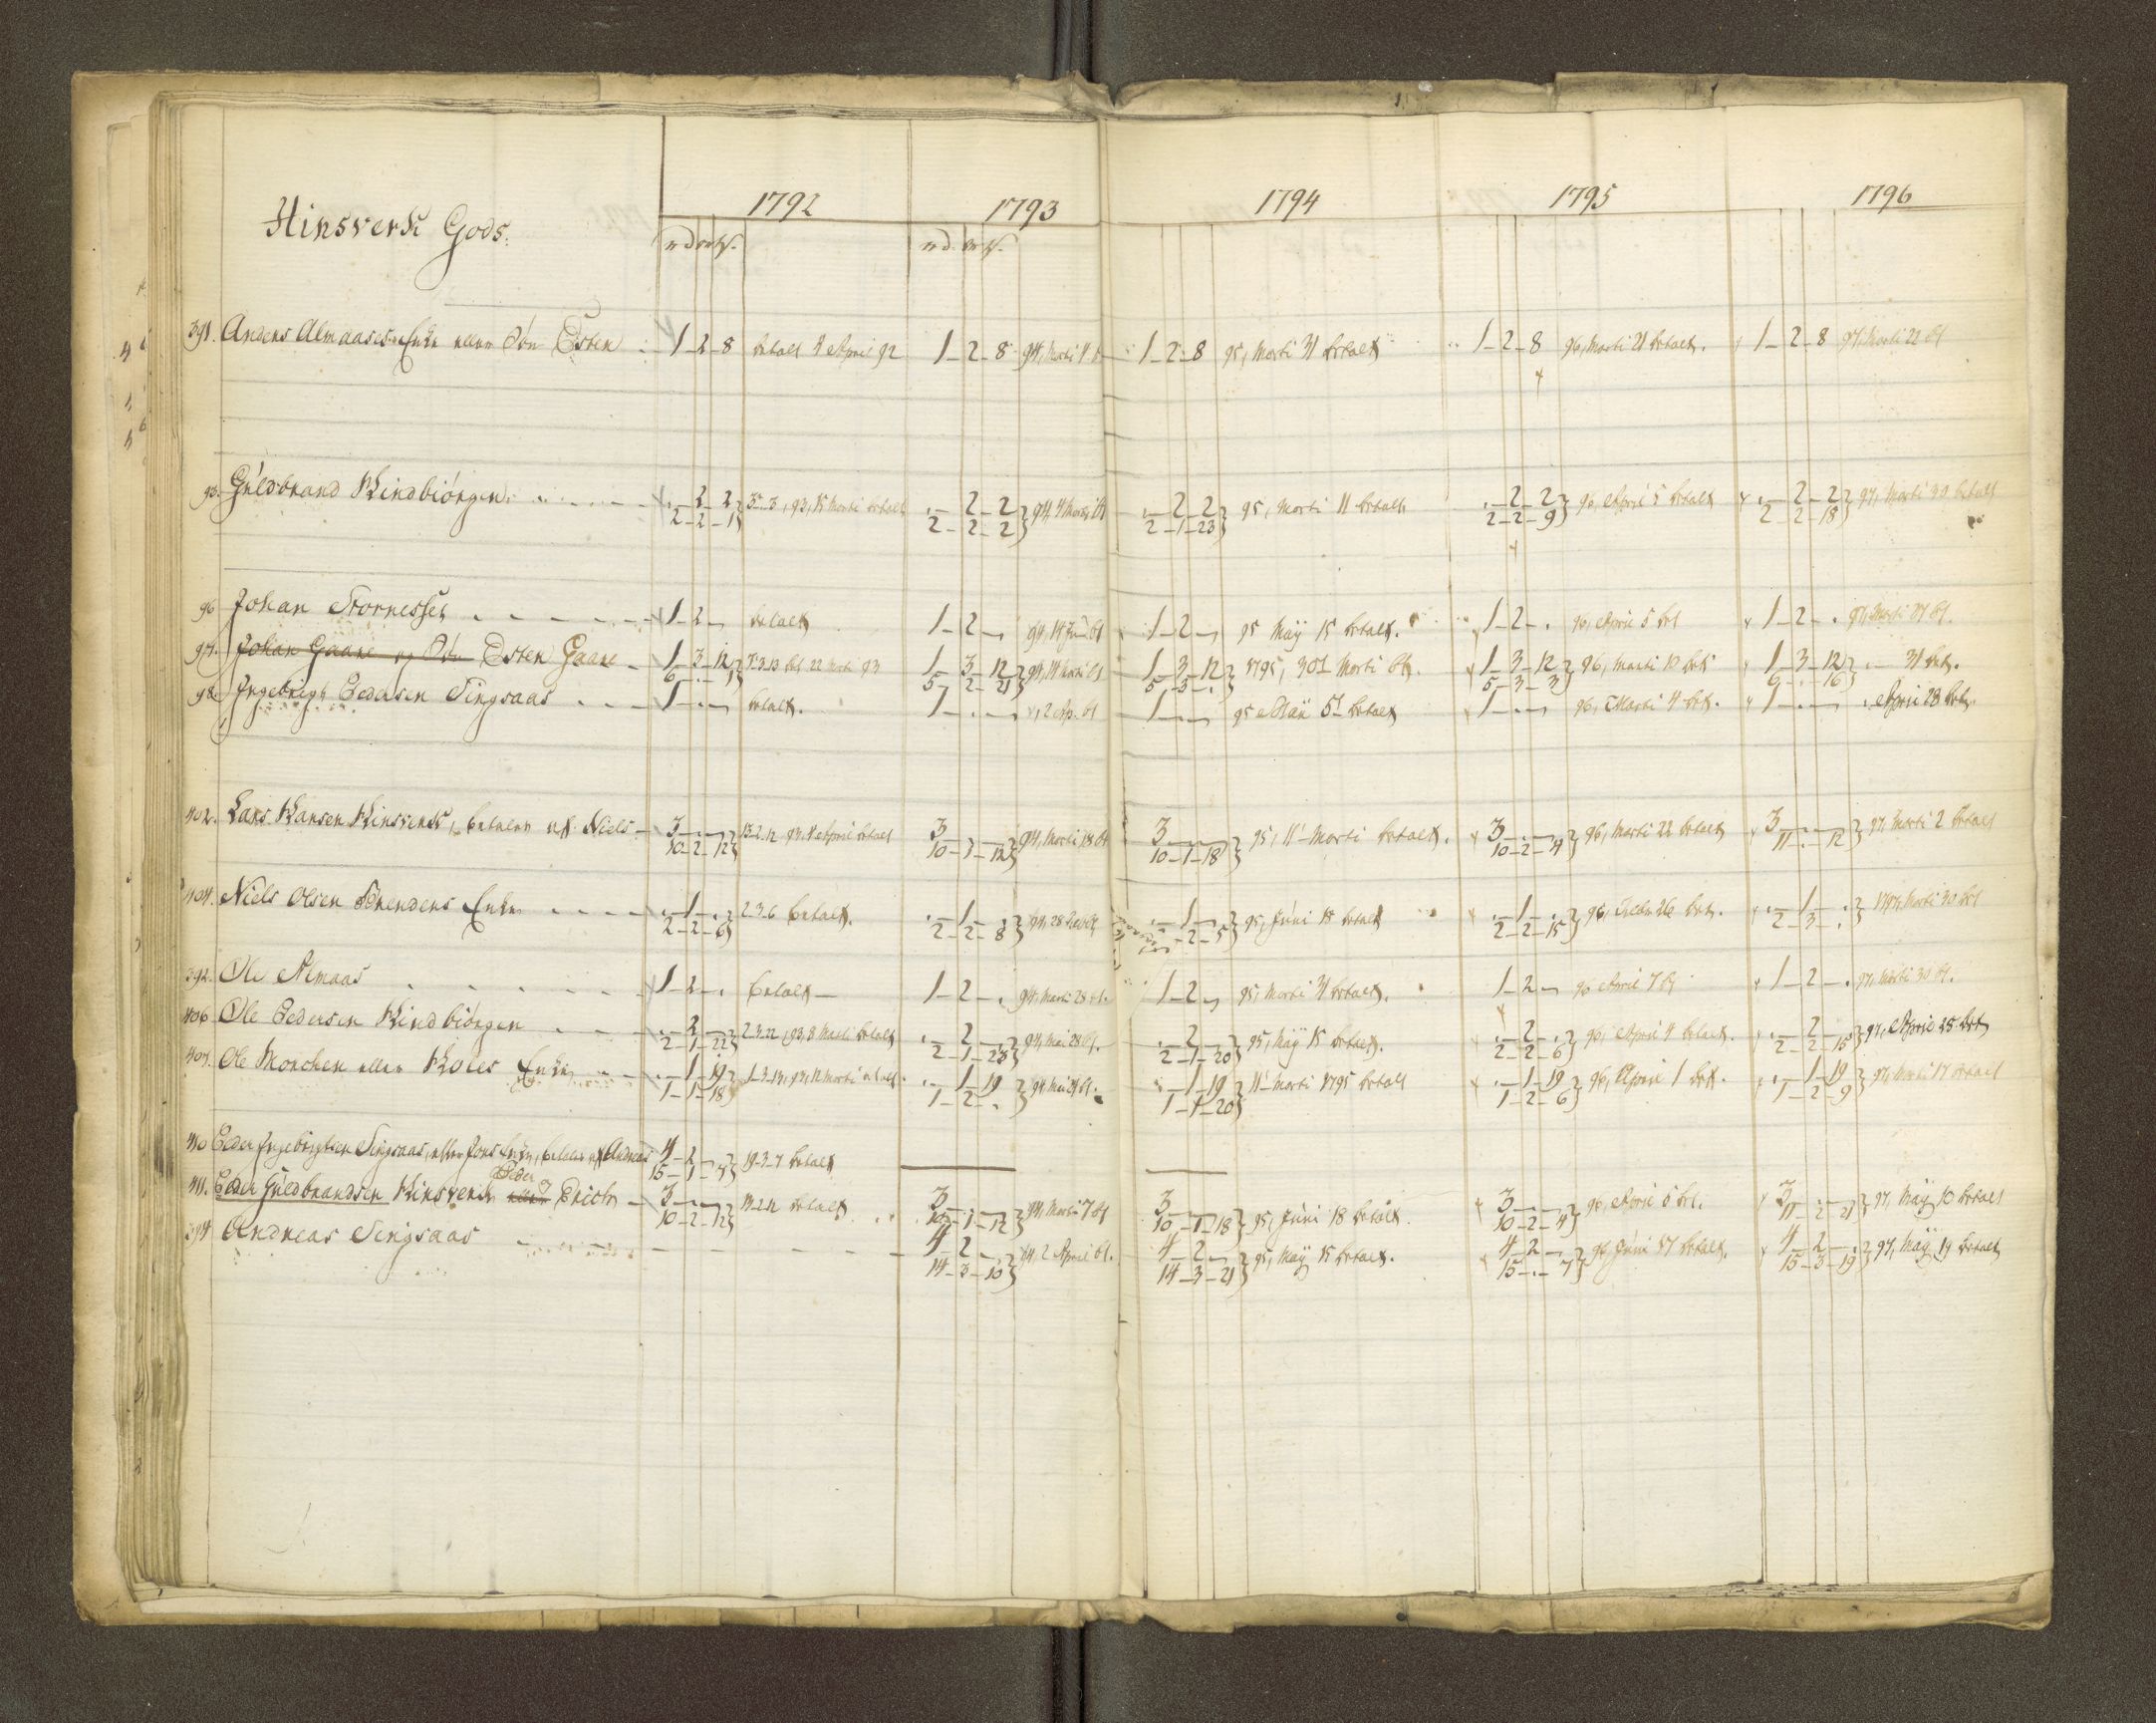 1792 1793 1794 1795 1796
Hinsverk Gods.
391. Anders Almaases Enke eller Søn Esten 1-2-8 betalt 4 April 92 1-2-8 94, Marti 1-2-8 95, Marti 31 betalt 1-2-8 96, Marti 21 betalt. 1-2-8 97, Marti 22 bt
93. Guldbrand Kindbiórgen 2-2 3-3, 93, 15 Marti betalt 2-2 94, 4 Marti bt 2-2 95, Marti 11 betalt 2-2 96, April 5 betalt 2-2 97, Marti 30 betalt
2-2-1 2-2-2 2-1-23 2-2-9 2-2-18
96 Johan Stornesset 1-2- betalt 1-2- 94, 14 bt 1-2- 95 Maÿ 15 betalt. 1-2- 96, April 5 bet 1-2- 97, Marti bt.
97. Johan Gaare og Søn Esten Gaare 1-3-12 22 Marti 93 1-3-12 94, 14 Marti bt 1-3-12 1795, 30t Marti bt. 1-3-12 96, Marti 10 bet 1-3-12 31 bet.
6-.-1 5-2-21 5-3-. 5-3-3 6-.-16
98. Ingebrigt Pedersen Singsaas 1 betalt. 1 2 Ap. bt 1 95 Maÿ 5t betalt 1 96, Marti 4 bet. 1 April 28 bet.
402. Lars Hansen Hinsverk, betaler af Niels 3 13-2-12 93. 4 April betalt 3 94, Marti 18 bt 3 95, 11t Marti betalt. 3 96, Marti 22 betalt 3 97, Marti 2 betalt
10-2-12 10-1-12 10-1-18 10-2-4 11-.-12
404. Niels Olsen Enke 1 2-3-6 betalt. 1 94, 28 1 95, Juni 18 betalt 1 96, 26 bet. 1 1797, Marti 30 bet
2-2-6 2-2-8 2-2-5 2-2-15 2-3-.
392. Ole Almaas 1-2-. betalt 1-2-. 94, Marti 28 bt. 1-2- 95, Marti 31 betalt. 1-2- 96 April 7 bt 1-2-. 97, Marti 30 bt.
406 Ole Pedersen Kindbiórgen 2 2-3-22, 93, 8 Marti betalt 2 94, Mai 28 bt. 2 95, Maÿ 15 betalt. 2 96, April 4 betalt. 2 97, April 25 bet
2-1-22 2-1-23 2-1-20 2-2-6 2-2-15
407. Ole Monchen eller Enke 1-19 1-3-13, 93, 12 Marti betalt. 1-19 94 Mai bt. 1-19 11t Marti 1795 betalt 1-19 96, April 1 bet. 1-19 97, Marti 17 betalt
1-1-18 1-2-. 1-1-20 1-2-6 1-2-9
410 Peder Ingebrigtsen Singsaas, eller Jons Enke, betaler af Andreas 4-2 19-3-7 betalt
15-1-7
411. Peder Guldbrandsen Hinsverk eller Peder og Erich 3 13-2-12 betalt 3 94, Marti 7 bt 3 95, Juni 18 betalt. 3 96, April 5 bet. 3 97, Maÿ 10 betalt
10-2-12 10-1-12 10-1-18 10-2-4 11-2-21
394 Andreas Singsaas 4-2 94. 2 April bt. 4-2 95, Maÿ 15 betalt. 4-2 96, Juni 17 betalt. 4-2 97, Maÿ 19 betalt
14-3-10 14-3-21 15-.-7 15-3-19